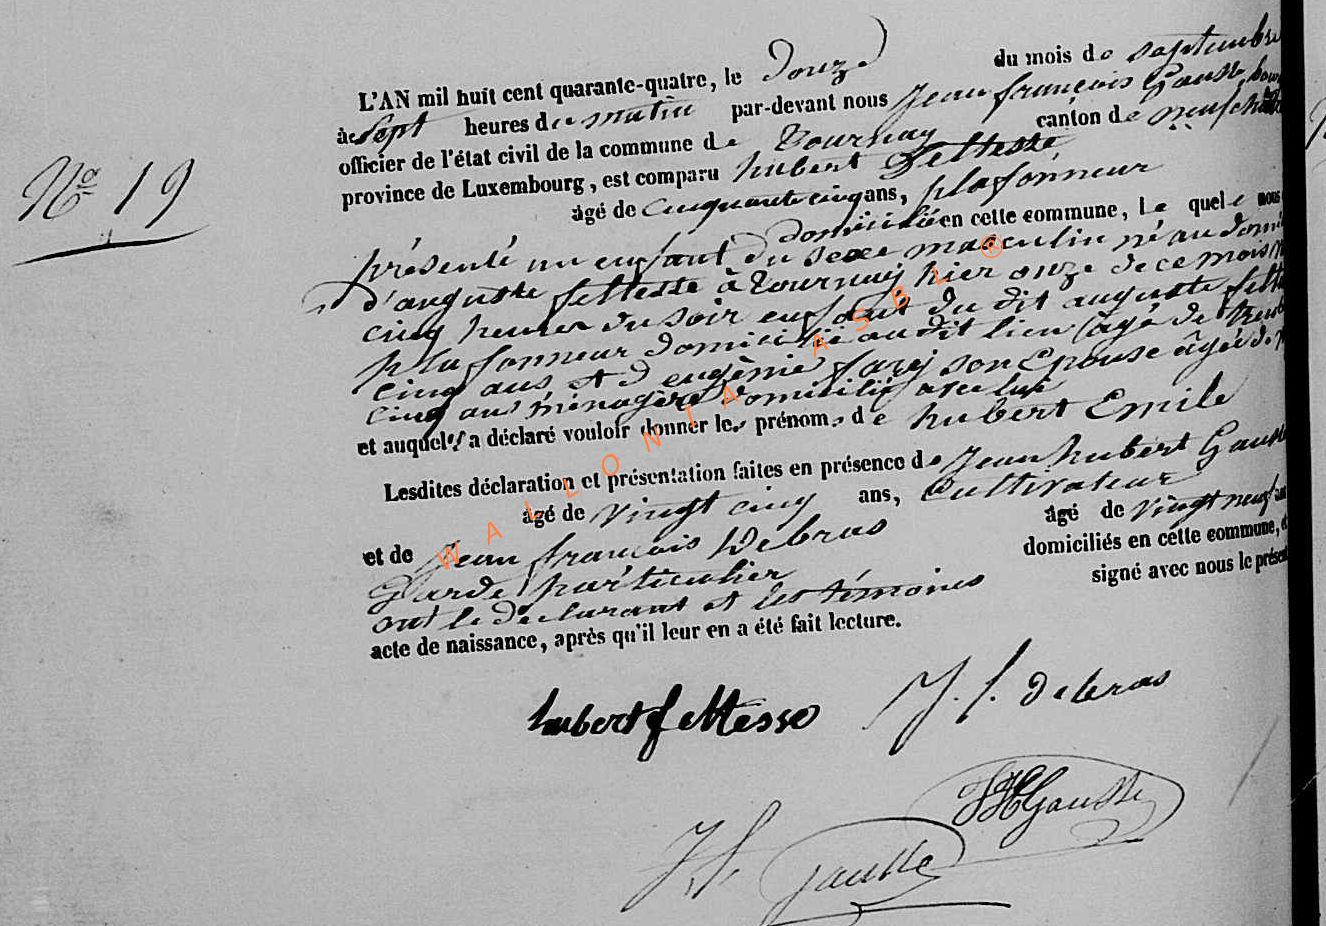 N.º 19
L'AN mil huit cent quarante-quatre, le douze du mois de septembre
à sept heures du matin par-devant nous Jean françois Gausse
officier de l'état civil de la commune de Tournay canton de neufchâ
province de Luxembourg, est comparu hubert fettesse
âgé de cinquante cinq ans, plafonneur
domicilié en cette commune, le quel nous
présenté un enfant du sexe masculin né au domi
d'auguste fettesse à Tournay hier onze de ce mois
cinq heures du soir enfant du dit auguste fette
plafonneur domicilié au dit lieu âgé de trente
cinq ans et d'eugènie son Epouse âgée de
cinq ans ménagère domicilié avec lui
et auquel il a déclaré vouloir donner les prénoms de hubert Emile
Lesdites déclaration et présentation faites en présence de Jean hubert Gausse
âgé de vingt cinq ans, Cultivateur
et de Jean françois Debras âgé de vingt neuf ans
Garde particulier domiciliés en cette commune,
ont le déclarant et les témoins signé avec nous le présent
acte de naissance, après qu'il leur en a été fait lecture.
hubert fettesse
J. f. debras
JH Gausse
J. f. Gausse
WALLONIA ASBL ®